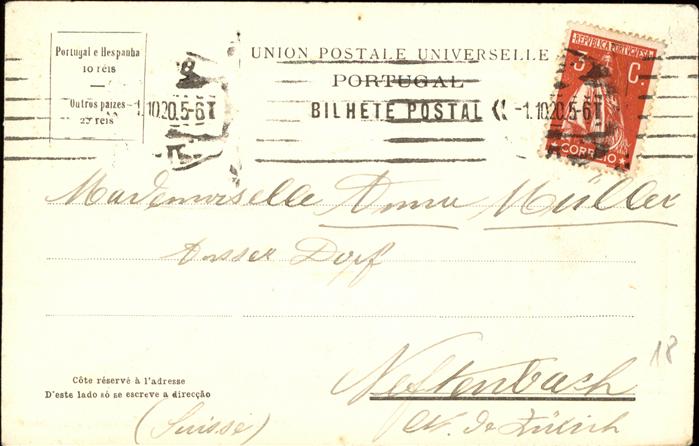 Portugal e Hespanha
10 réis
Outros paizes
25 réis
UNION POSTALE UNIVERSELLE
PORTUGAL
BILHETE POSTAL
REPUBLICA PORTUGUESA
3 C.
CORREIO
-1.10.20.5-6T
-1.10.20.5-6T
Mademoiselle Anna Müller
Ausser Dorf
Neftenbach
Ct. de Zürich
(Suisse)
Côte réservé à l'adresse
D'este lado só se escreve a direcção
18